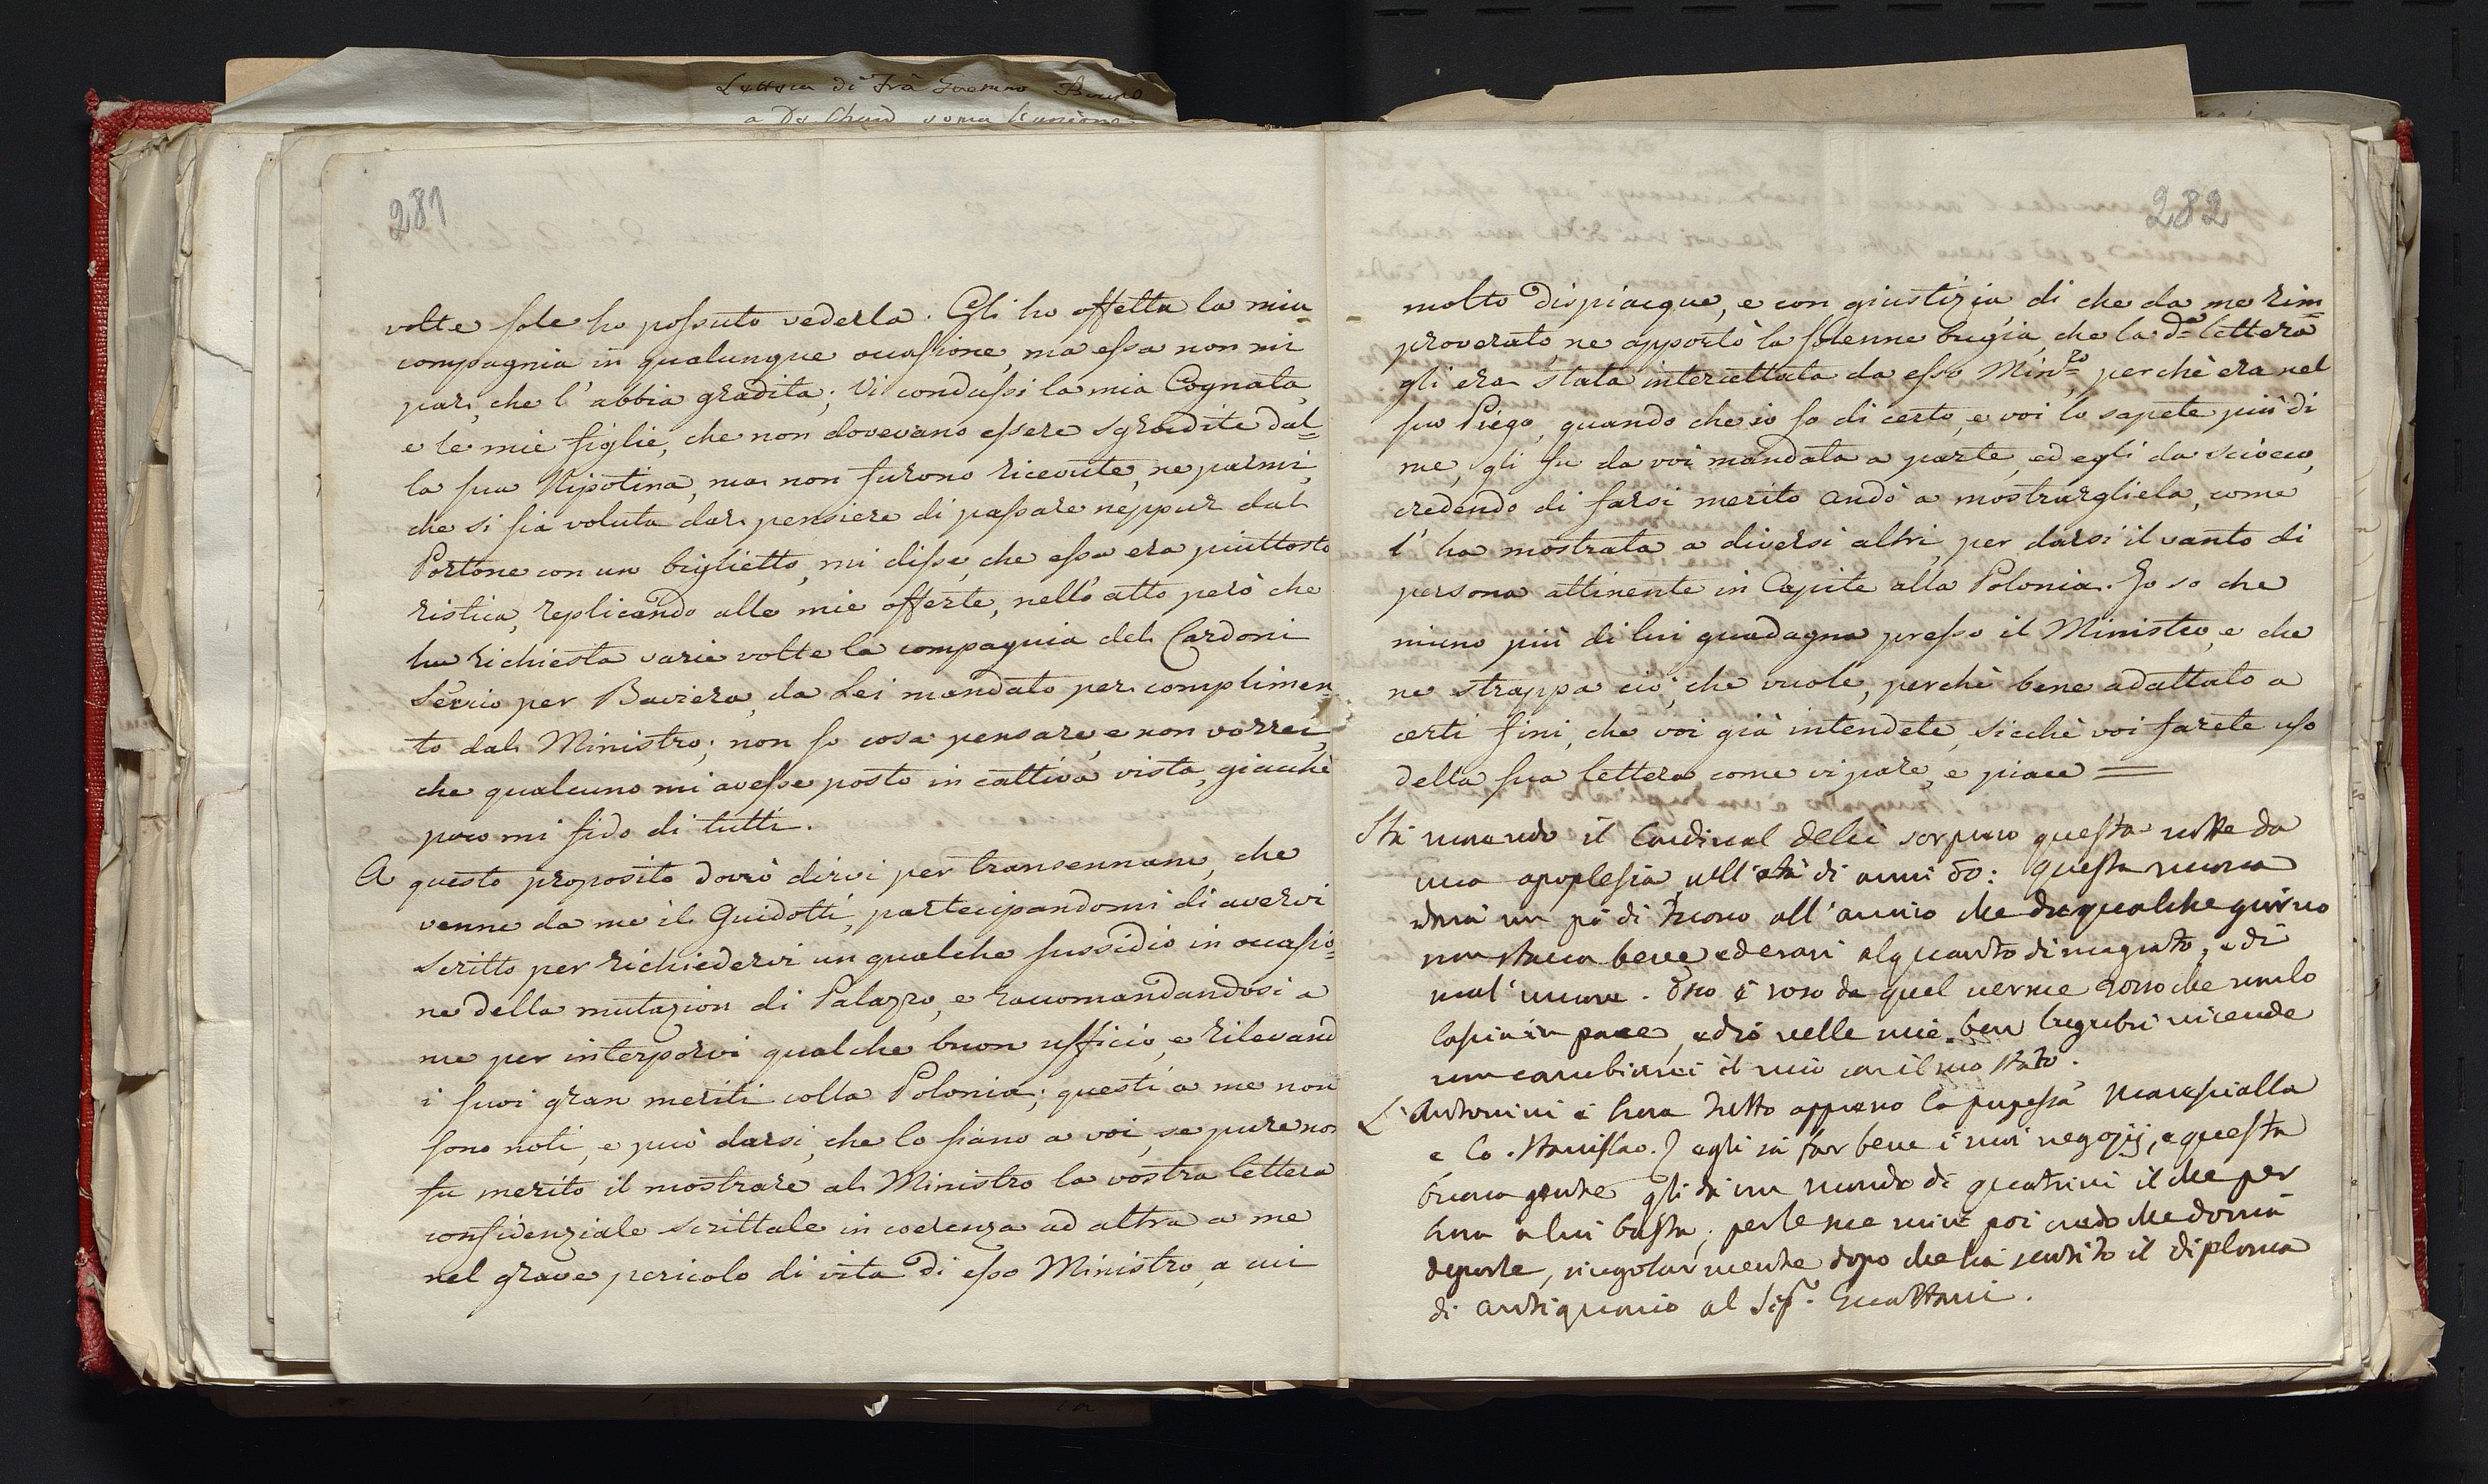 Lettera di Frà
281
volte sole ho possuto vederla. Gli ho offetta la mia
compagnia in qualunque occasione, ma essa non mi
pare, che l'abbia gradita; Vi condussi la mia Cognata,
e le mie figlie, che non dovevano essere sgradite dal=
la sua Nipotina, ma non furono ricevute, ne parmi,
che si sia voluta dar pensiere di passare neppur dal
Portone con un biglietto, mi disse, che essa era piuttosto
ristica, replicando alle mie offerte, nell'atto però che
ha richiesta varie volte la compagnia del Cardoni
Sevio per Baviera, da Lei mandato per complimen
to dal Ministro; non so cosa pensare, e non vorrei,
che qualcuno mi avesse posto in cattiva vista, giacchè
poco mi fido di tutti.
A questo proposito dovrò dirvi per transennam, che
venne da me il Guidotti, partecipandomi di avervi
scritto per richiedervi un qualche sussidio in occasio=
ne della mutazion di Palazzo, e raccomandandosi a
me per interporvi qualche buon ufficio, e rilevand
i suoi gran meriti colla Polonia; questi a me non
sono noti, e può darsi, che lo siano a voi, se pure non
fu merito il mostrare al Ministro la vostra lettera
confidenziale scrittale in coerenza ad altra a me
nel grave pericolo di vita di esso Ministro, a cui
282
molto dispiacque, e con giustizia, di che da me rim=
proverato, ne apportò la solenne bugia, che la da lettera
gli era stata intercettata da esso Minro, perchè era nel
suo Piego, quando che io so di certo, e voi lo sapete più di
me, gli fu da voi mandata a parte, ed egli da sciocco,
credendo di farsi merito andò a mostrargliela, come
l'ha mostrata a diversi altri per darsi il vanto di
persona attinente in Capite alla Polonia. Io so che
niuno più di lui guadagna presso il Ministro, e che
ne strappa ciò, che vuole, perchè bene adattato a
certi fini, che voi già intendete, sicchè voi farete uso
della sua lettera come vi pare, e piace =
Stà morendo il Cardinal Delci sorpreso questa notte da
una apoplesia, nell'età di anni 80: questa nuova
darà un pò di tuono all'amico che da qualche giorno
non stava bene ed erasi alquanto dimagrato, e di
mal'umore. è roso da quel verme che non lo
lascia in pace, ed io nelle mie ben lugubri vicende
non cambierei il mio con il suo stato.
L'Antonini è hora tutto appreso la Maresciàlla
e Co. Stanislao. egli sà far bene i suoi negozij, e questa
buona gente gli dà un mondo di quatrini il che per
hora a lui basta; per le poi credo che dovrà
deporle, singolarmente dopo che hà sentito il diploma
di antiquario al Sigr. Guattani.